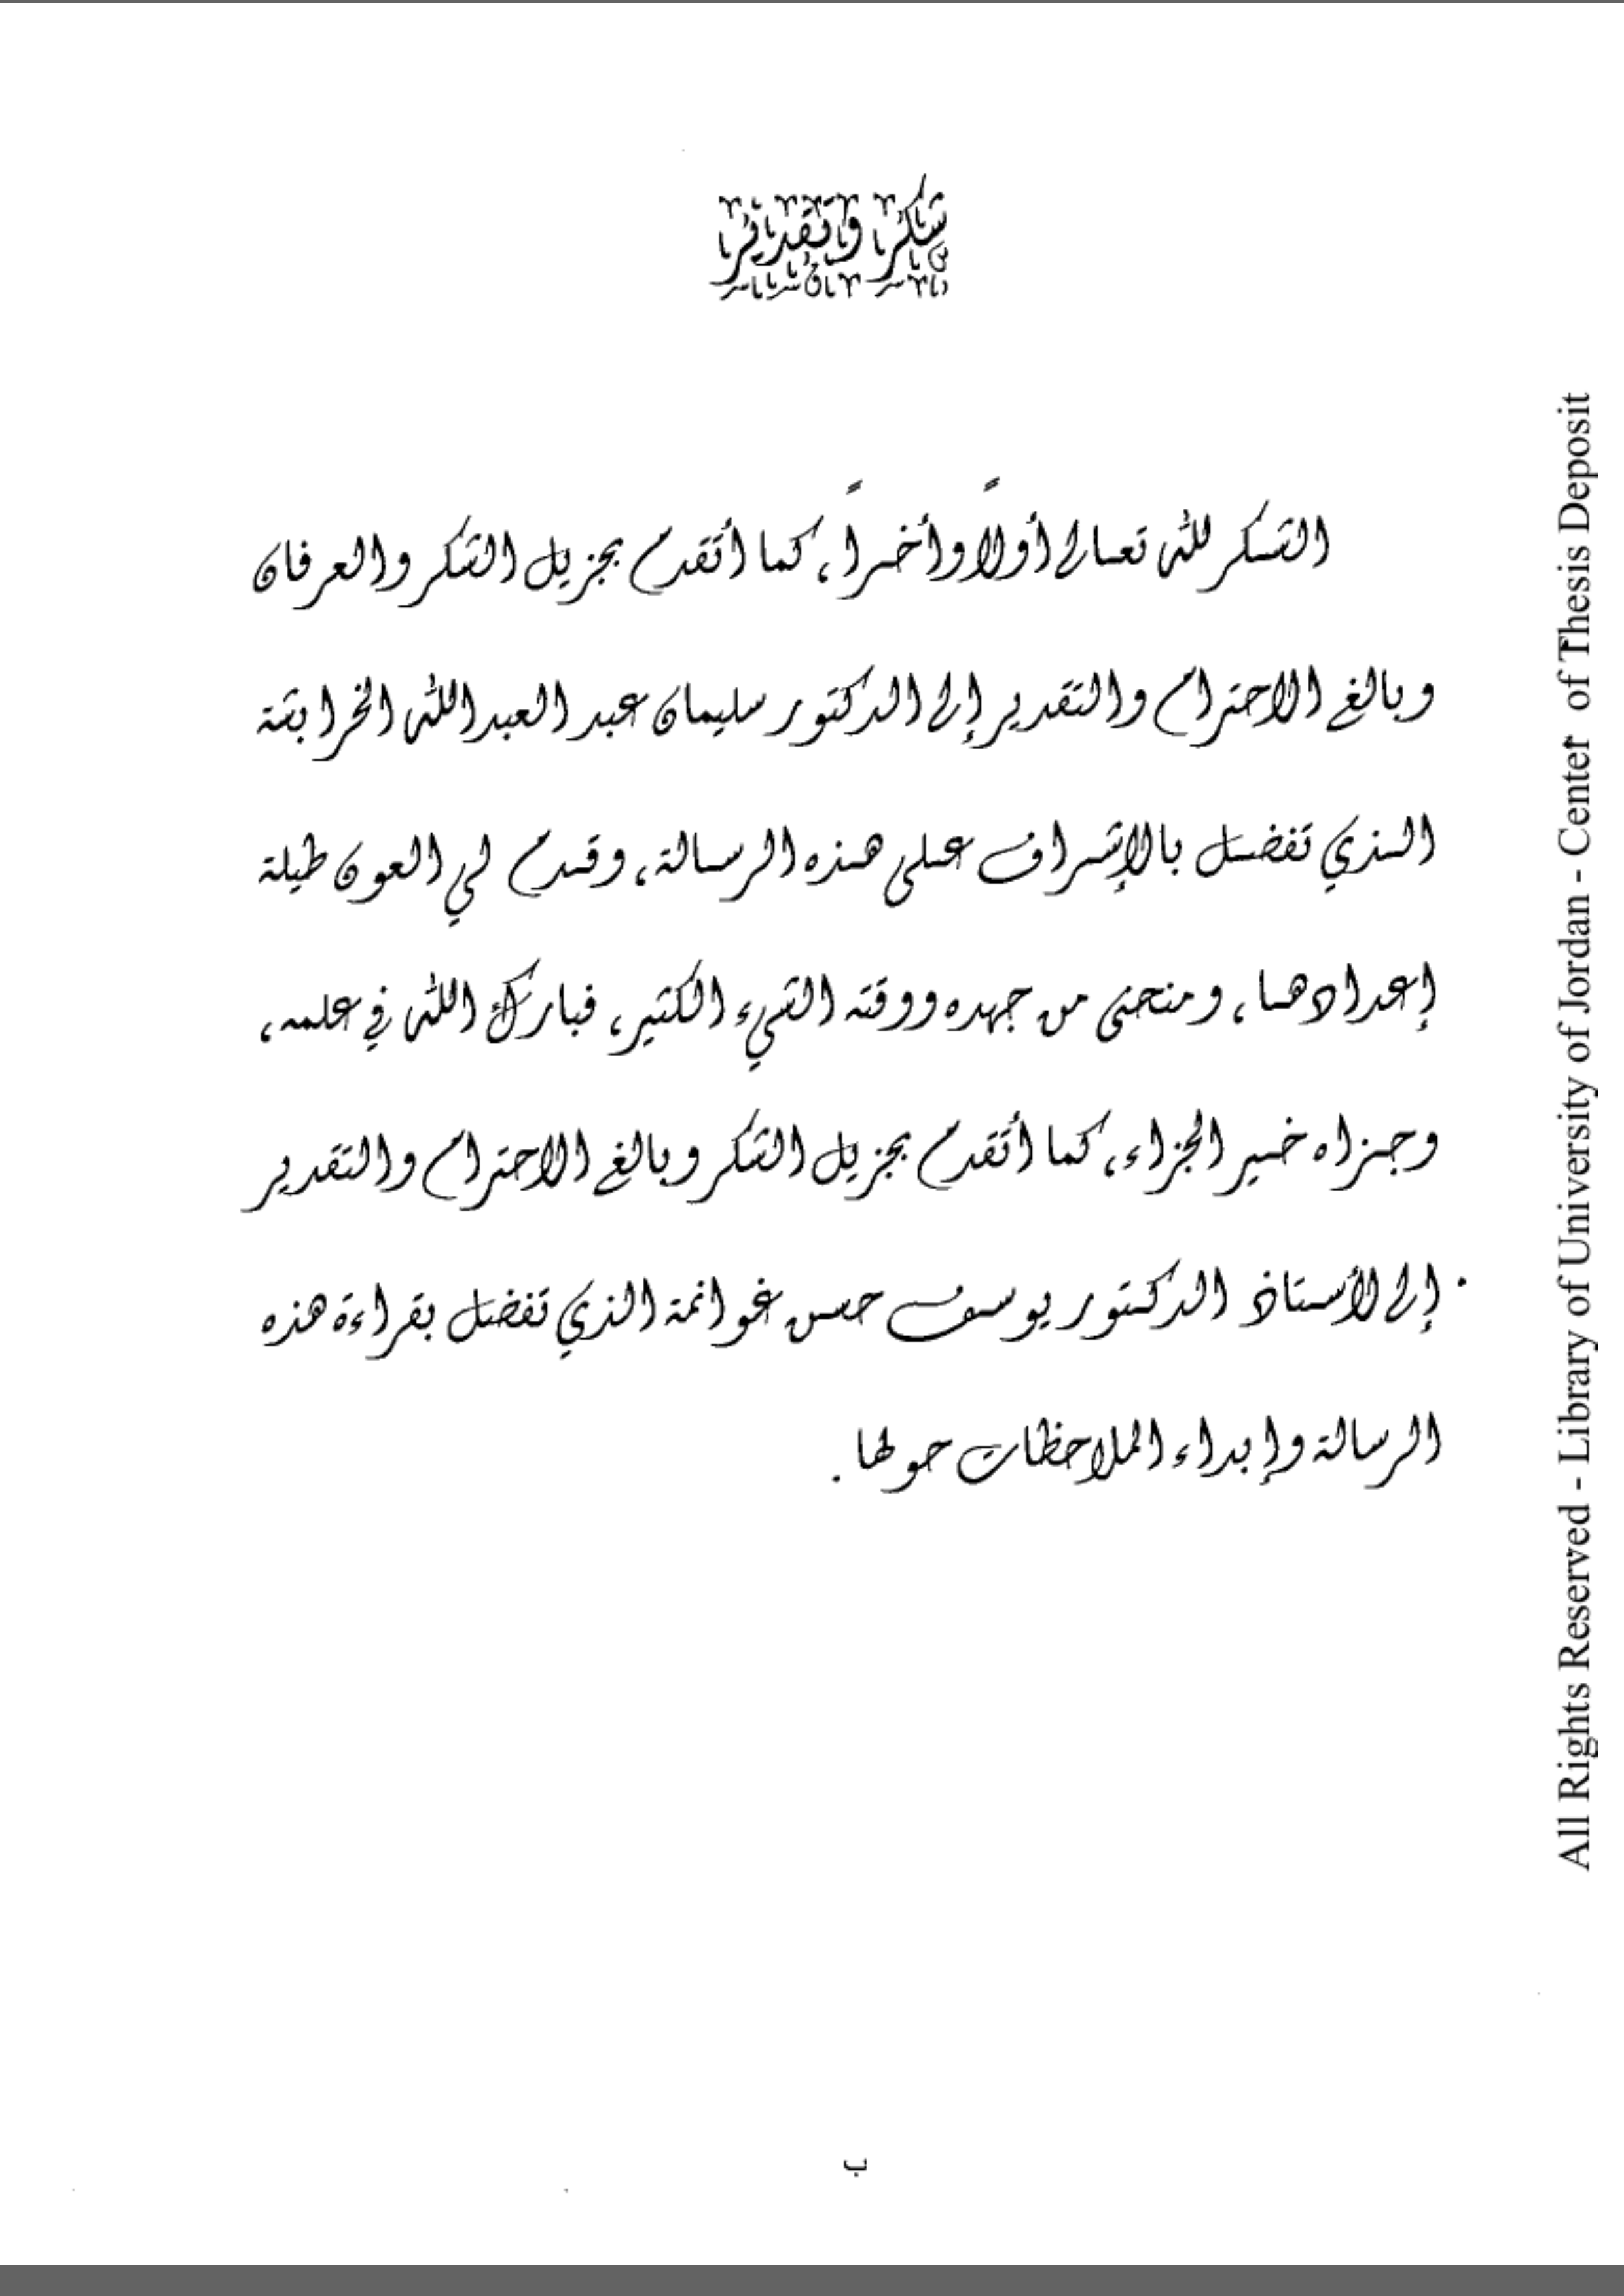 شكر وتقدير
الشكر لله تعالى أولاً وأخيراً، كما أتقدم بجزيل الشكر والعرفان
وبالغ الاحترام والتقدير إلى الدكتور سليمان عبد العبدالله الخرابشة
الذي تفضل بالإشراف على هذه الرسالة، وقدم لي العون طيلة
إعدادها، ومنحني من جهده ووقته الشيء الكثير، فبارك الله في علمه،
وجزاه خير الجزاء، كما أتقدم بجزيل الشكر وبالغ الاحترام والتقدير
إلى الأستاذ الدكتور يوسف حسن غوانمة الذي تفضل بقراءة هذه
الرسالة وإبداء الملاحظات حولها.
ب
All Rights Reserved - Library of University of Jordan - Center of Thesis Deposit